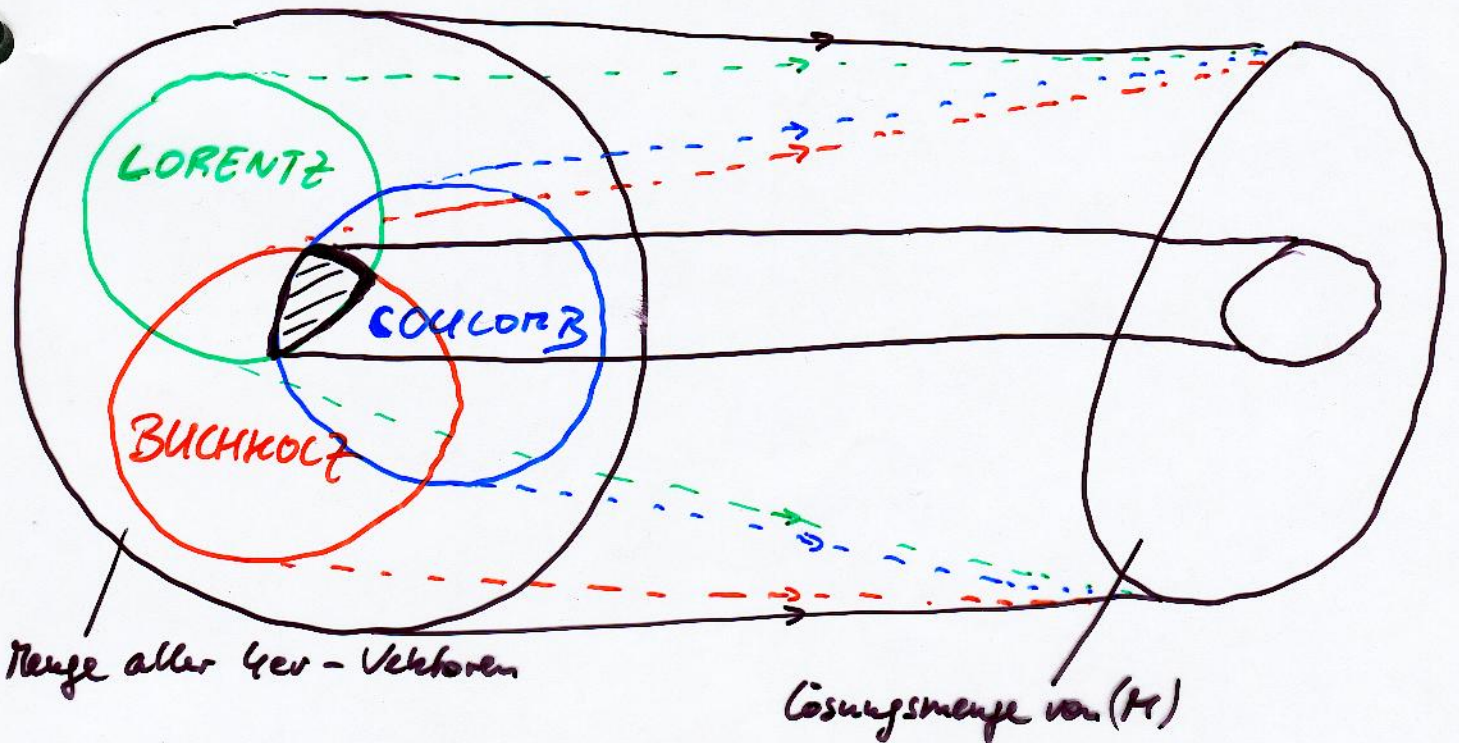 LORENTZ
COULOMB
BUCHHOLZ
Menge aller 4er-Vektoren
Lösungsmenge von (M)